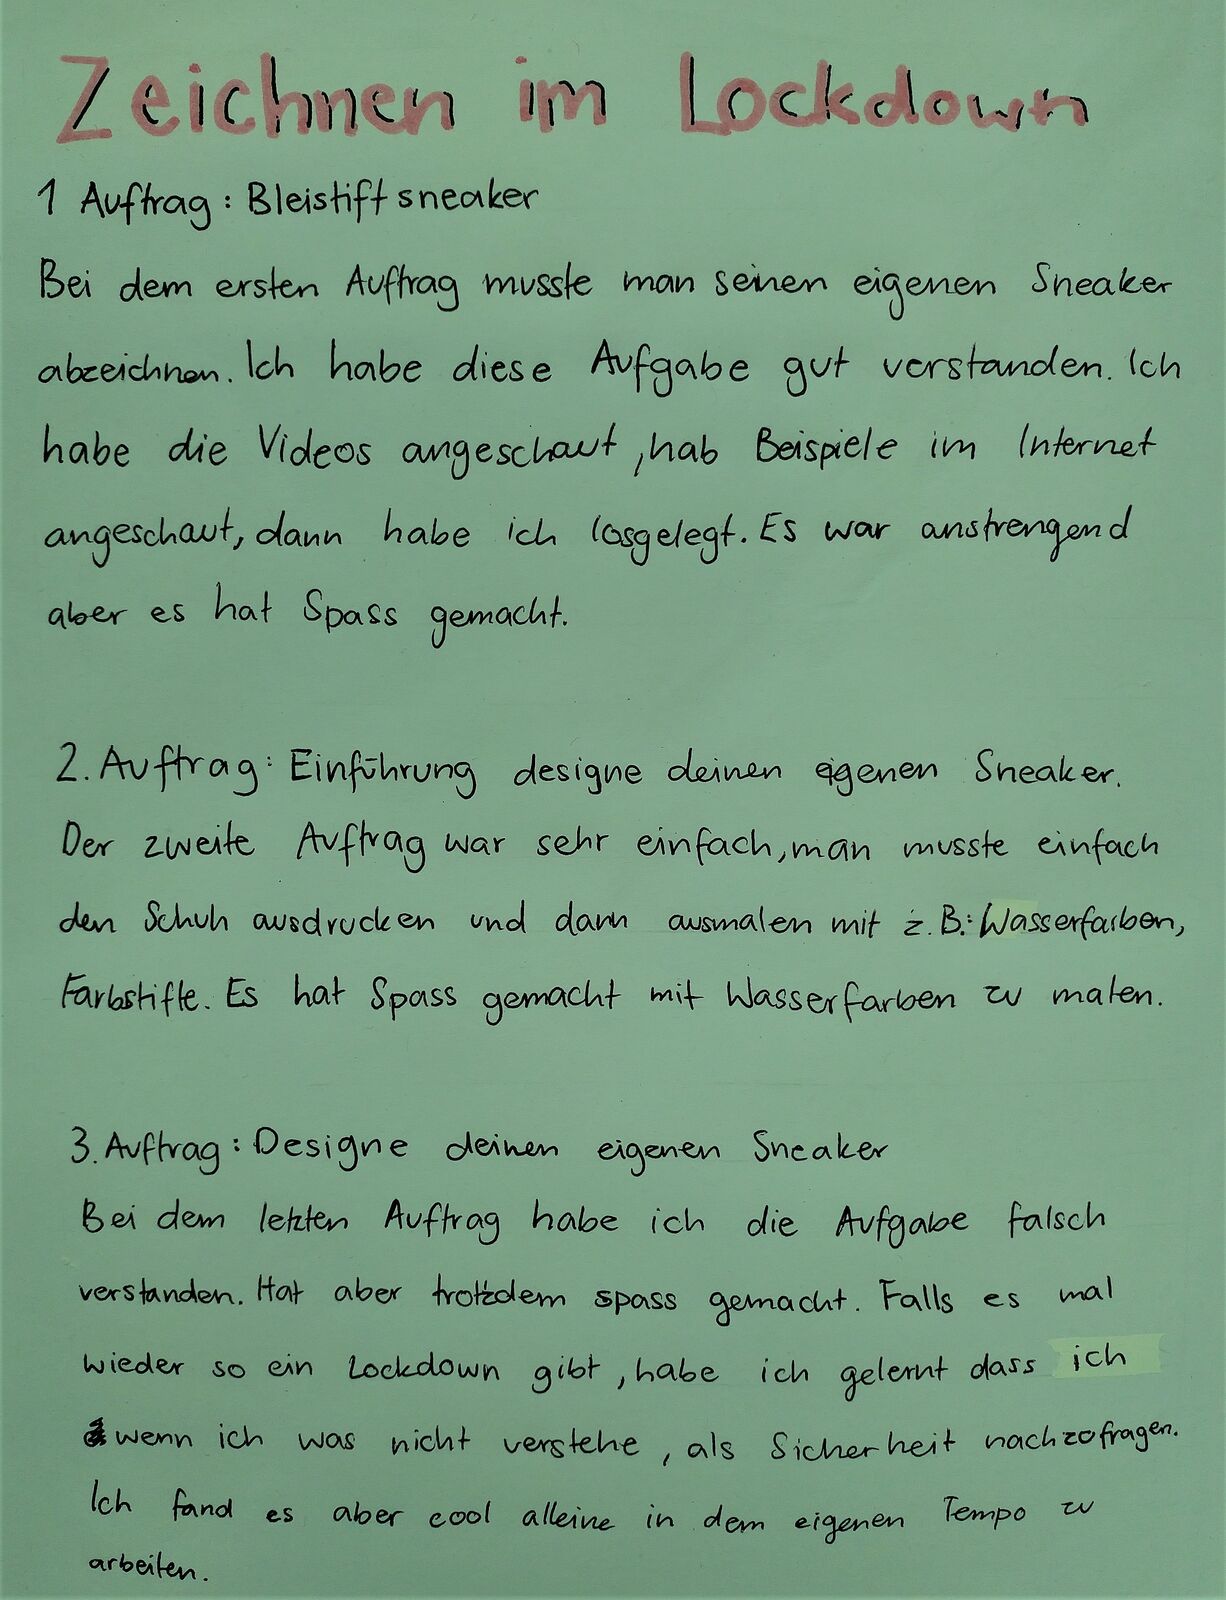 Zeichnen im Lockdown
1 Auftrag: Bleistiftsneaker
Bei dem ersten Auftrag musste man seinen eigenen Sneaker
abzeichnen. Ich habe diese Aufgabe gut verstanden. Ich
habe die Videos angeschaut, hab Beispiele im Internet
angeschaut, dann habe ich losgelegt. Es war anstrengend
aber es hat Spass gemacht.
2. Auftrag: Einführung designe deinen eigenen Sneaker.
Der zweite Auftrag war sehr einfach, man musste einfach
den Schuh ausdrucken und dann ausmalen mit z.B.: Wasserfarben,
Farbstifte. Es hat Spass gemacht mit Wasserfarben zu malen.
3. Auftrag: Designe deinen eigenen Sneaker
Bei dem letzten Auftrag habe ich die Aufgabe falsch
verstanden. Hat aber trotzdem spass gemacht. Falls es mal
wieder so ein Lockdown gibt, habe ich gelernt dass ich
wenn ich was nicht verstehe, als Sicherheit nachzofragen.
Ich fand es aber cool alleine in dem eigenen Tempo zu
arbeiten.